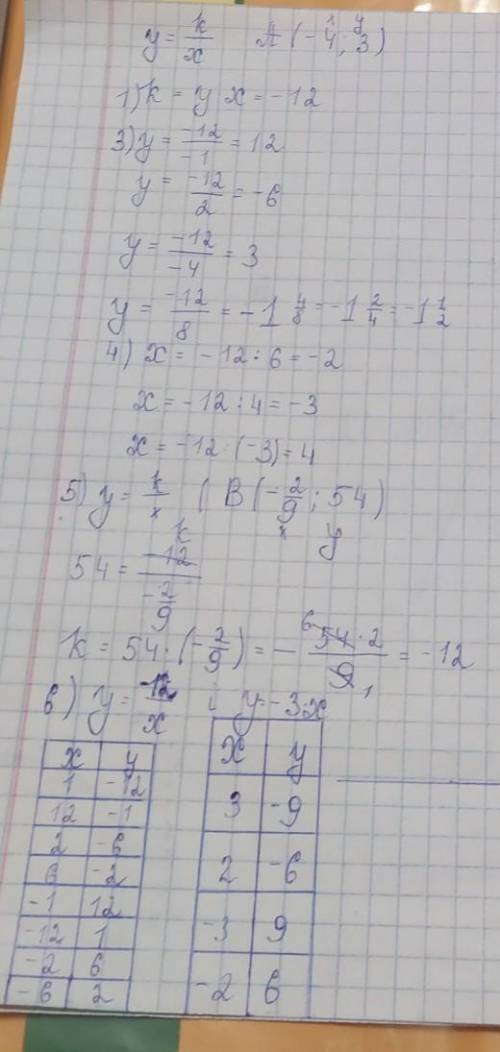 y = k/x   A (-4; 3)
x y
1) k = y x = -12
3) y = -12/-1 = 12
y = -12/2 = -6
y = -12/-4 = 3
y = -12/8 = -1 4/8 = -1 2/4 = -1 1/2
4) x = -12 : 6 = -2
x = -12 : 4 = -3
x = -12 : (-3) = 4
5) y = k/x ( B (-2/9 ; 54)
x y
k
54 = -12/-2/9
k = 54 · (-2/9) = - 54·2/9 = -12
6 1
6) y = -12/x i y = -3·x
x y
1 -12
12 -1
2 -6
6 -2
-1 12
-12 1
-2 6
-6 2
x y
3 -9
2 -6
-3 9
-2 6